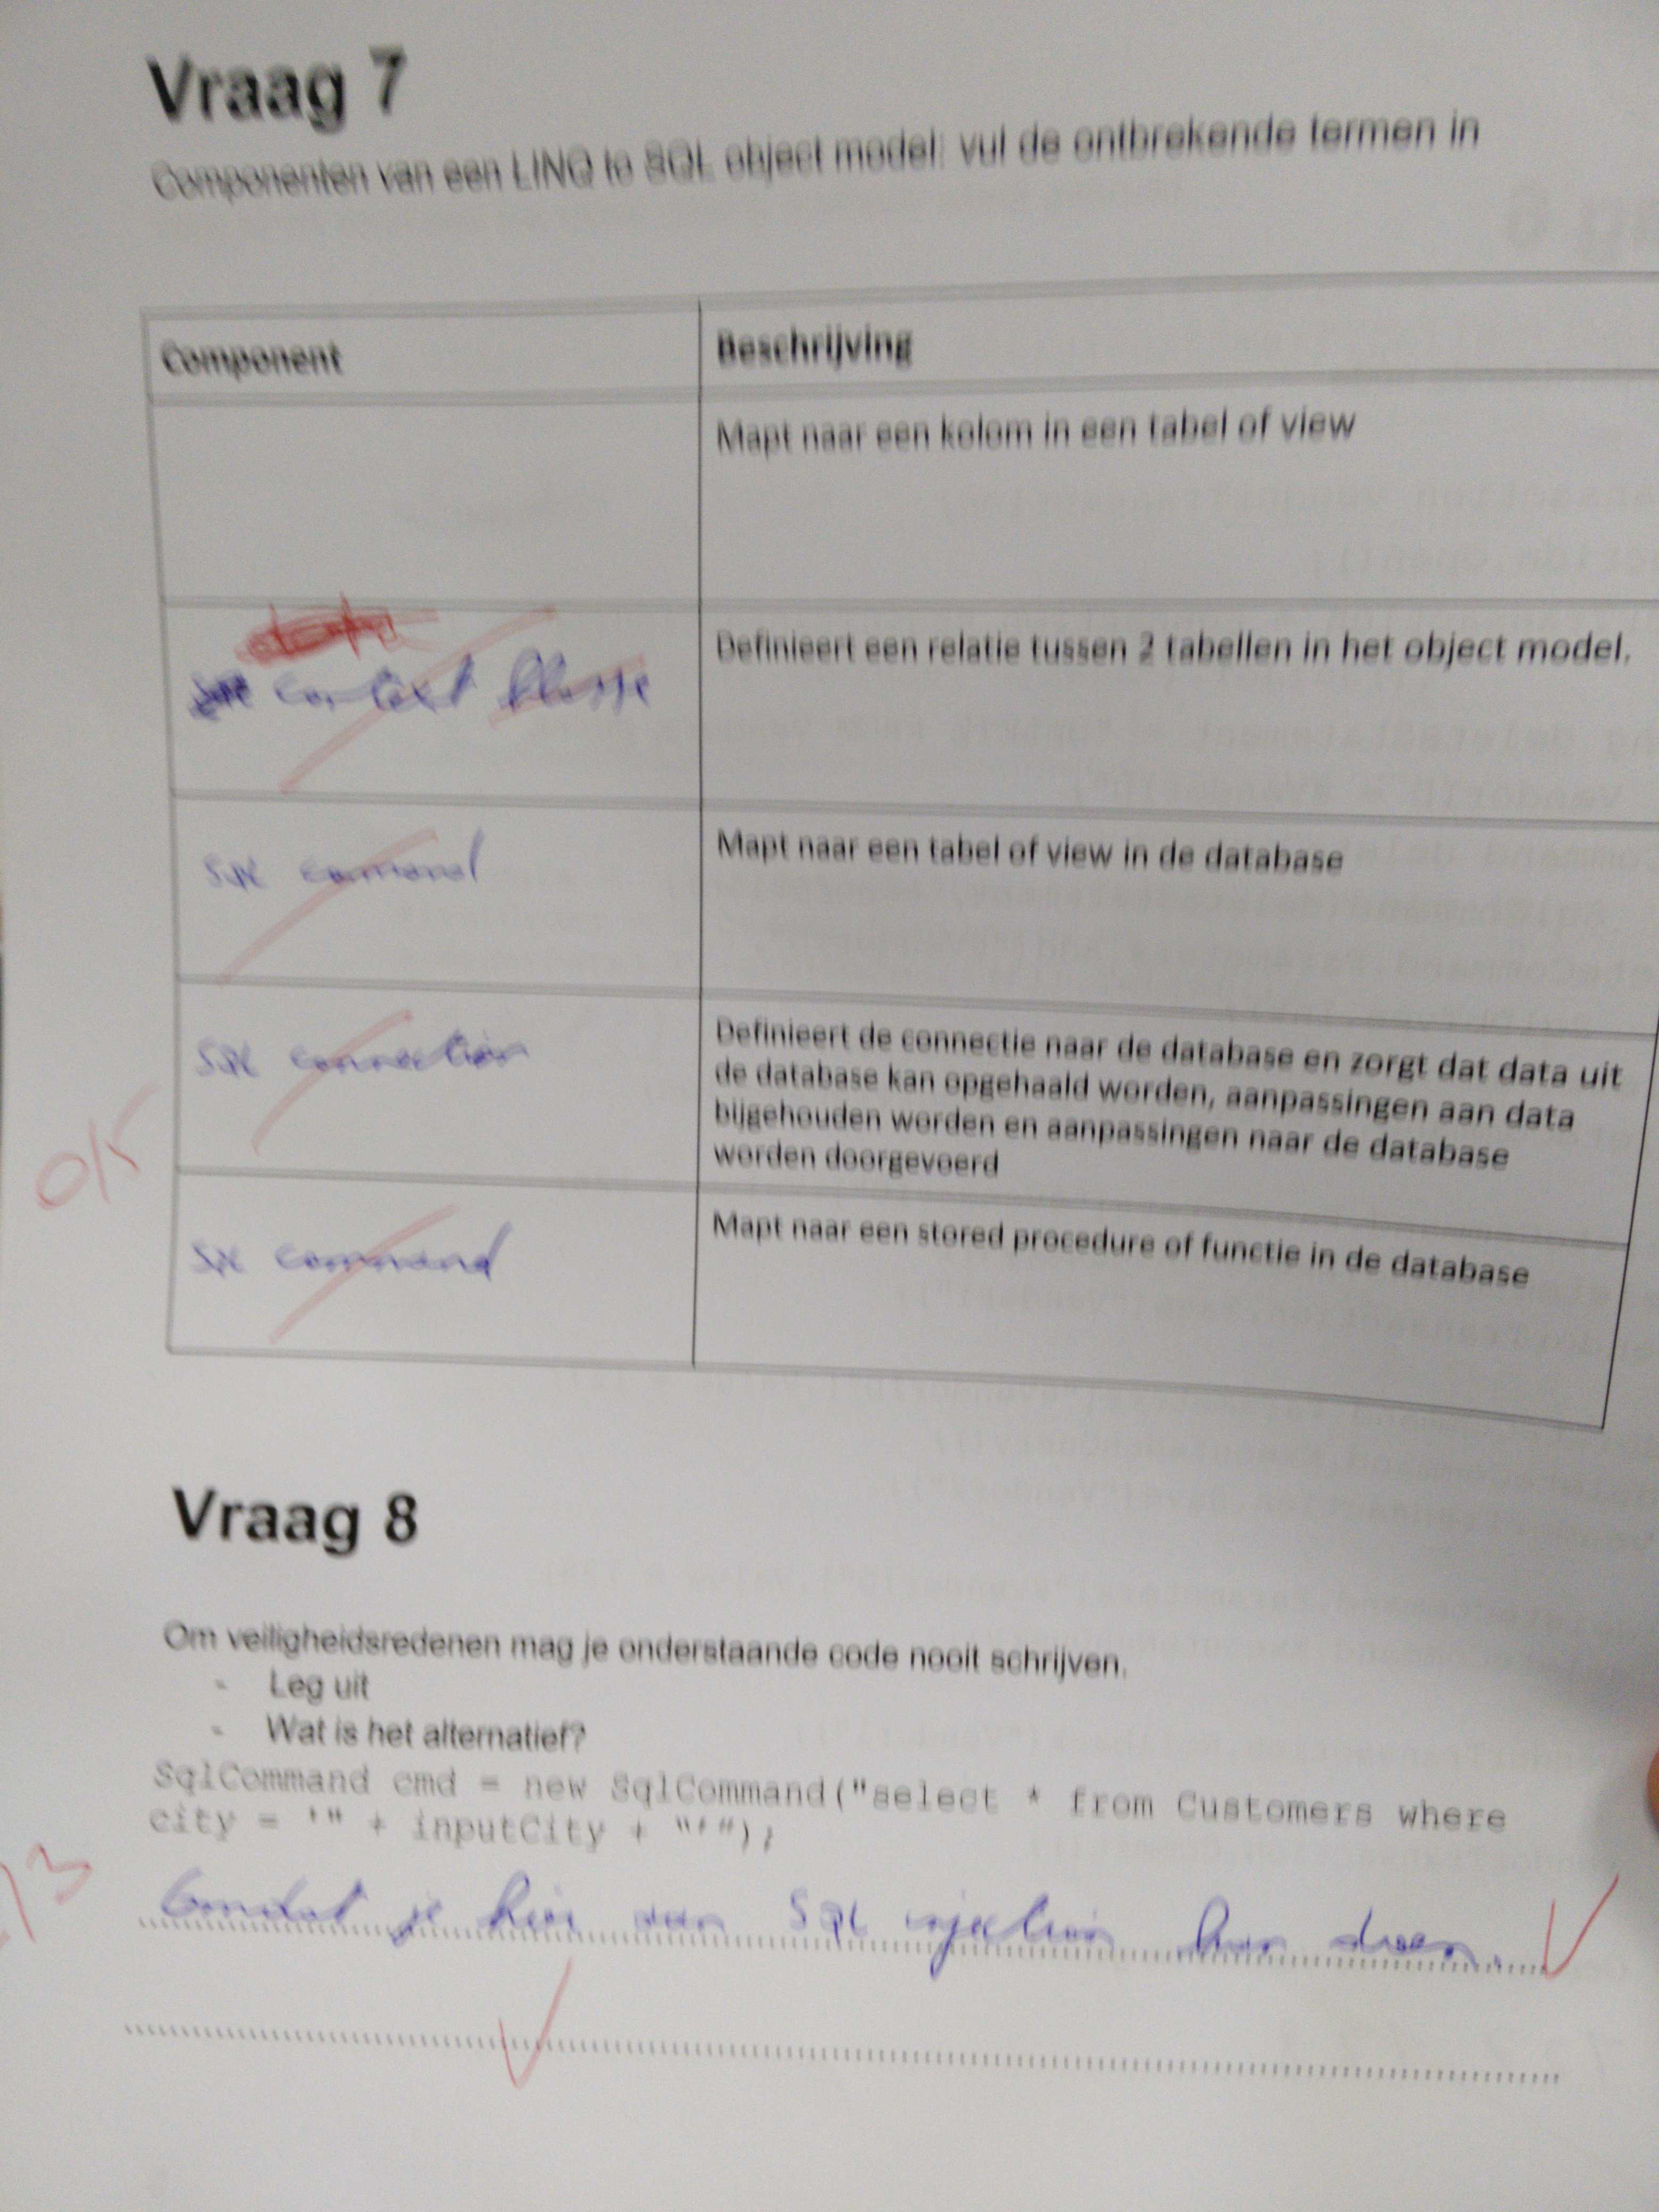 Vraag 7
Componenten van een LINQ to SQL object model: vul de ontbrekende termen in
Component
Beschrijving
Mapt naar een kolom in een tabel of view
context klasse
Definieert een relatie tussen 2 tabellen in het object model.
Sql comand
Mapt naar een tabel of view in de database
Sql connection
Definieert de connectie naar de database en zorgt dat data uit
de database kan opgehaald worden, aanpassingen aan data
bijgehouden worden en aanpassingen naar de database
worden doorgevoerd
0/5
Sql command
Mapt naar een stored procedure of functie in de database
Vraag 8
Om veiligheidsredenen mag je onderstaande code nooit schrijven.
- Leg uit
- Wat is het alternatief?
SqlCommand cmd = new SqlCommand("select * from Customers where
city = '" + inputCity + "'");
/3
Omdat je hier aan Sql injection kan doen.